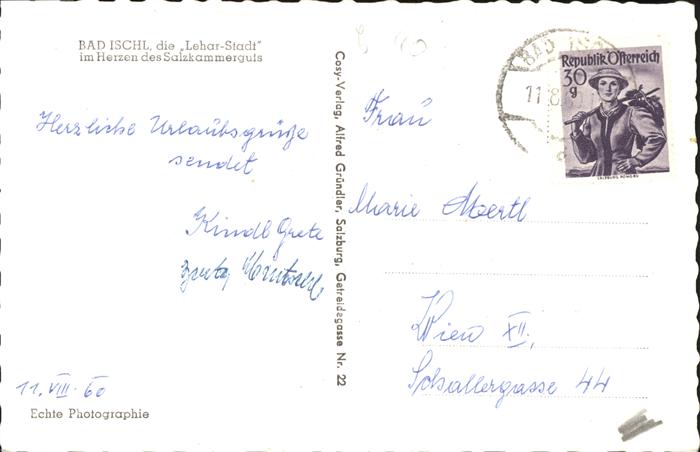 BAD ISCHL, die „Lehar-Stadt"
im Herzen des Salzkammerguts
Herzliche Urlaubsgrüße
sendet
Kindl Grete
11. VIII. 60
Echte Photographie
Cosy-Verlag, Alfred Gründler, Salzburg, Getreidegasse Nr. 22
BAD ISC
11.8
Republik Österreich
30
g
Frau
Marie Moertl
Wien XII,
Schallergasse 44